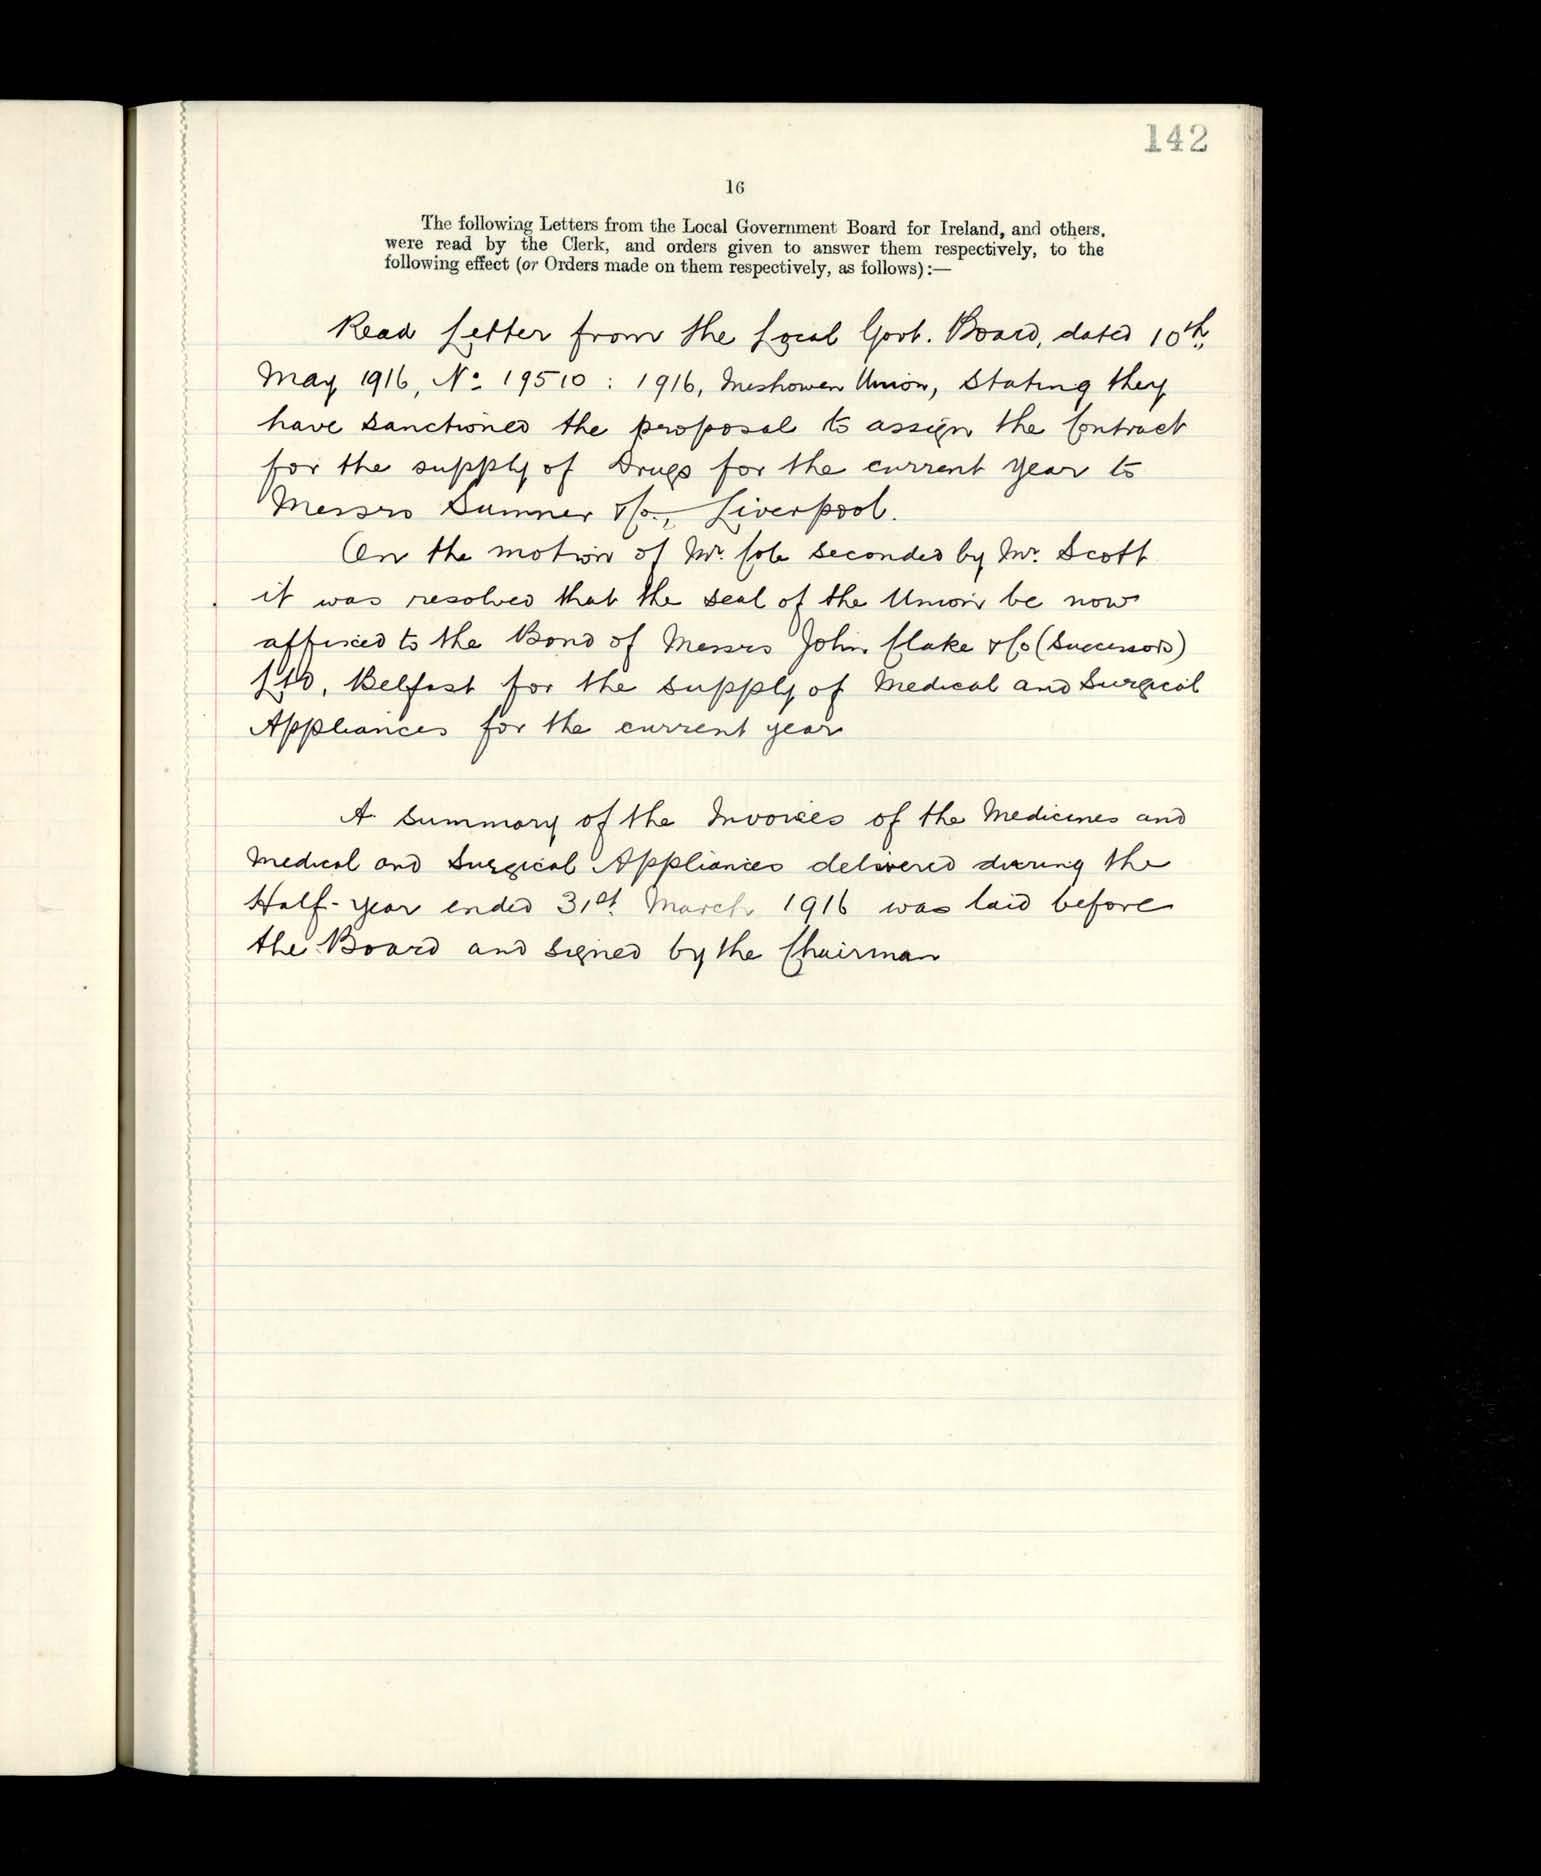 142
16
The following Letters from the Local Government Board for Ireland, and others,
were read by the Clerk, and orders given to answer them respectively, to the
following effect (or Orders made on them respectively, as follows):—
Read Letter from the Local Govt. Board, dated 10th
May 1916, No. 19510 : 1916, Inishowen Union, stating they
have sanctioned the proposal to assign the Contract
for the supply of Drugs for the current year to
Messrs Sumner & Co., Liverpool.
On the motion of Mr. seconded by Mr. Scott
it was resolved that the seal of the Union be now
affixed to the Bond of Messrs John Clarke & Co (Successors)
Ltd, Belfast for the supply of Medical and Surgical
Appliances for the current year
A Summary of the Invoices of the Medicines and
Medical and Surgical Appliances delivered during the
Half-Year ended 31st. March 1916 was laid before
the Board and signed by the Chairman